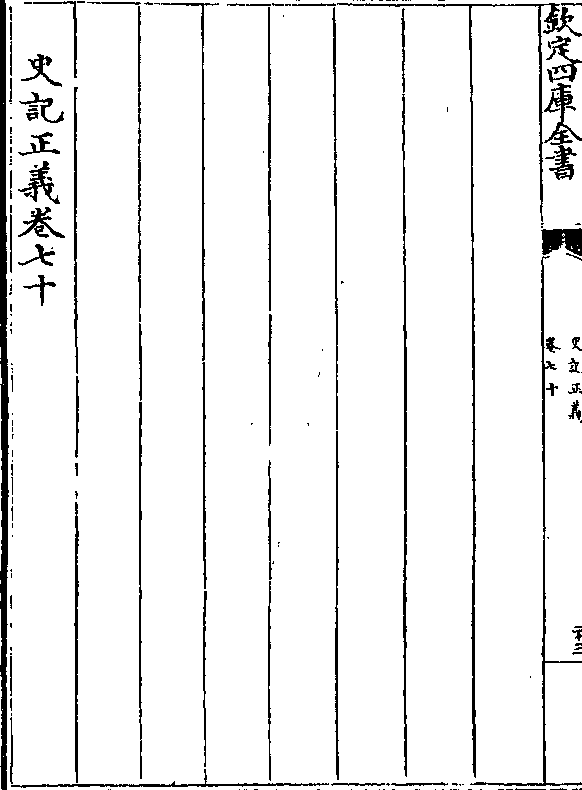 欽定四庫全書
史記正義
卷七十
史記正義卷七十